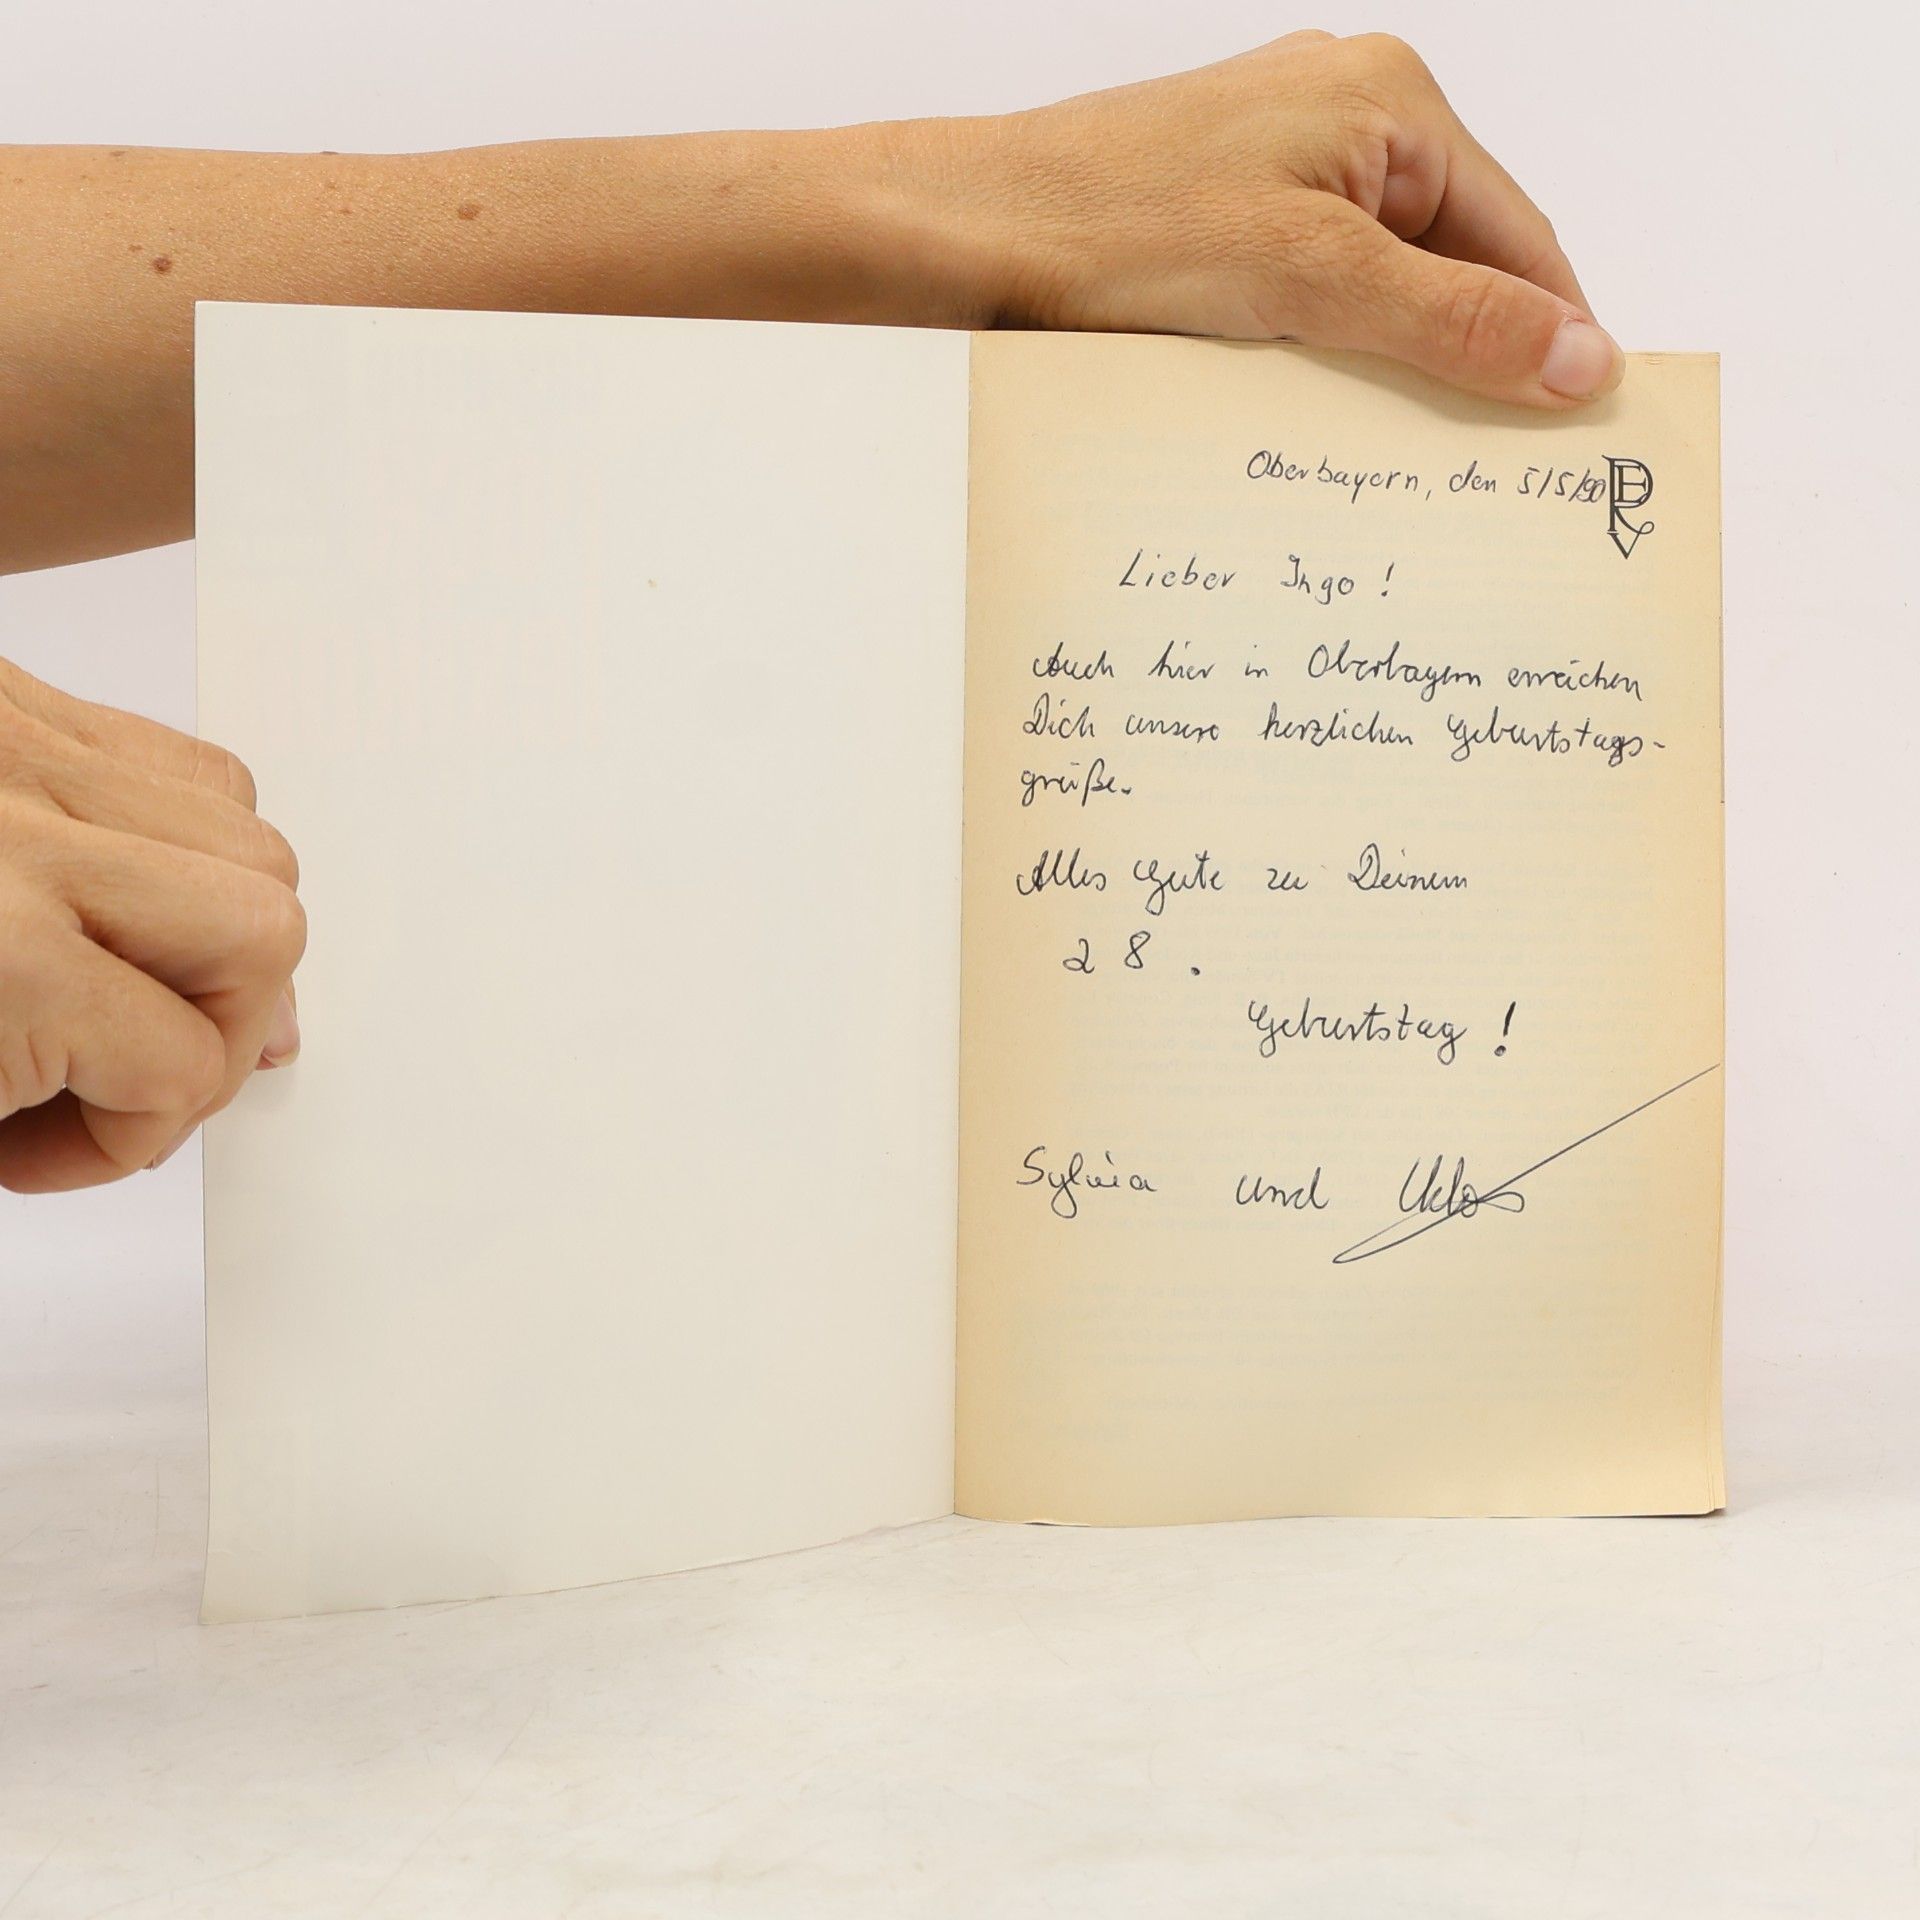 Oberbayern, den 5/5/90
Lieber Ingo !
Auch hier in Oberbayern erreichen
Dich unsere herzlichen Geburtstags-
grüße.
Alles Gute zu Deinem
28.
Geburtstag !
Sylvia und